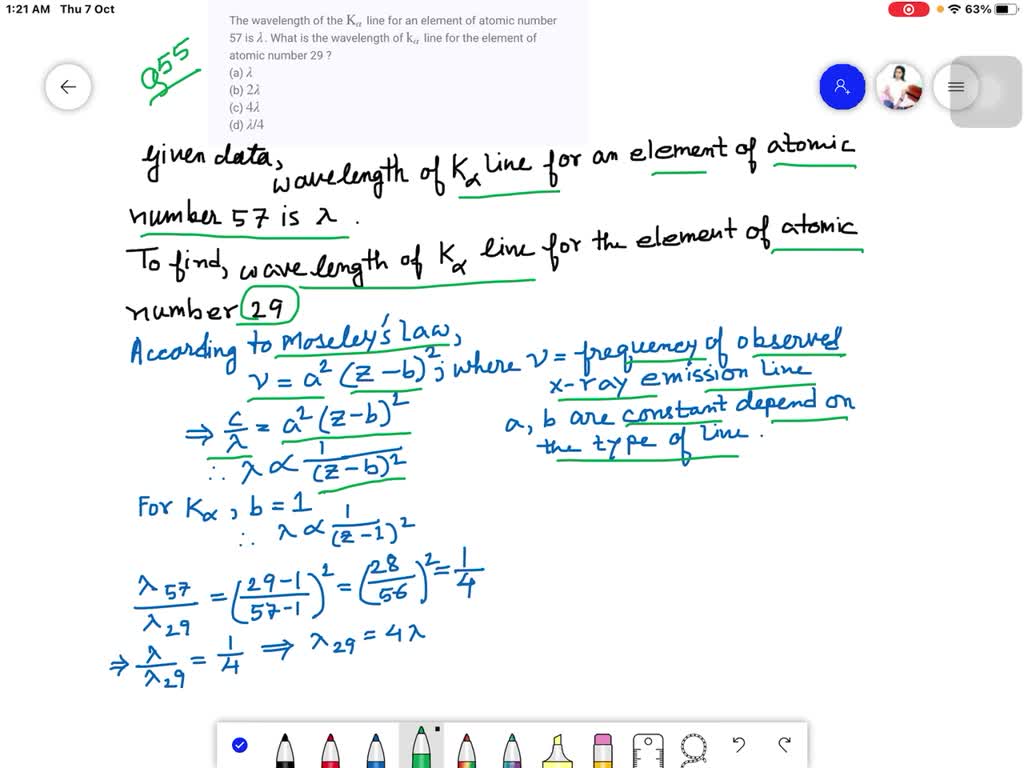 1:21 AM Thu 7 Oct 63%
The wavelength of the Kα line for an element of atomic number
57 is λ. What is the wavelength of kα line for the element of
atomic number 29 ?
(a) λ
(b) 2λ
(c) 4λ
(d) λ/4
given data,
wavelength of Kα line for an element of atomic
number 57 is λ.
To find, wavelength of Kα line for the element of atomic
number 29
According to Moseley's Law,
ν = a² (z-b)²; where ν = frequency of observed
x-ray emission line
⇒ c/λ = a² (z-b)²
a, b are constant depend on
the type of line.
∴ λ ∝ 1/(z-b)²
For Kα, b = 1
∴ λ ∝ 1/(z-1)²
λ57/λ29 = (29-1/57-1)² = (28/56)² = 1/4
⇒ λ/λ29 = 1/4 ⇒ λ29 = 4λ